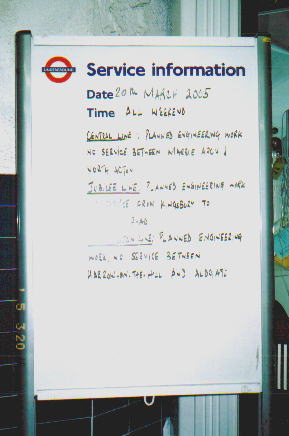 UNDERGROUND
Service information
Date 20TH MARCH 2005
Time ALL WEEKEND
CENTRAL LINE: PLANNED ENGINEERING WORK
NO SERVICE BETWEEN MARBLE ARCH &
NORTH ACTON
JUBILEE LINE: PLANNED ENGINEERING WORK
FROM KINGSBURY TO
LINE: PLANNED ENGINEERING
WORK, NO SERVICE BETWEEN
HARROW-ON-THE-HILL AND ALDGATE
'5 3:20